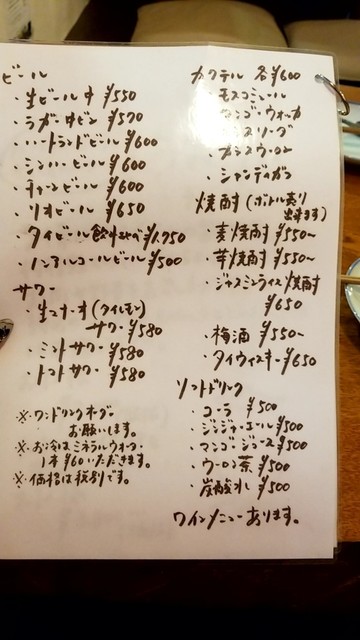 ビール
・生ビール中 ¥550
・ラガー中ビン ¥570
・ハートランドビール ¥600
・シンハービール ¥600
・チャーンビール ¥600
・リオビール ¥650
・タイビール飲みくらべ ¥1,750
・ノンアルコールビール ¥500
サワー
・生マナーオ(タイレモン)
サワー ¥580
・ミントサワー ¥580
・トマトサワー ¥580
※ワンドリンクオーダー
お願いします。
※お冷はミネラルウォーター
1本¥60いただきます。
※価格は税別です。
カクテル 各¥600
・モスコミュール
・マンゴーウォッカ
・シャンディガフ
焼酎(ボトル売り
出来ます)
・麦焼酎 ¥550~
・芋焼酎 ¥550~
・ジャスミンライス焼酎
¥650
・梅酒 ¥550~
・タイウィスキー ¥650
ソフトドリンク
・コーラ ¥500
・ジンジャーエール ¥500
・マンゴージュース ¥500
・ウーロン茶 ¥500
・炭酸水 ¥500
ワインメニューあります。